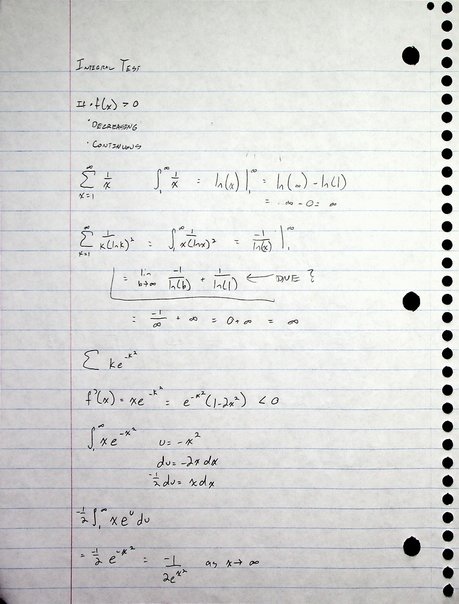 INTEGRAL TEST
If • f(x) > 0
• DECREASING
• CONTINUOUS
∞∑x=1 1/x ∫₁^∞ 1/x = ln(x) |₁^∞ = ln(∞) - ln(1)
= ∞ - 0 = ∞
∞∑k=1 1/k(lnk)² = ∫₁^∞ 1/x(lnx)² = -1/ln(x) |₁^∞
= lim b→∞ -1/ln(b) + 1/ln(1) ← DNE ?
= -1/∞ + ∞ = 0+∞ = ∞
∑ ke^-k²
f'(x) = xe^-x² = e^-x²(1-2x²) < 0
∫₁^∞ xe^-x² u = -x²
du = -2x dx
-1/2 du = x dx
-1/2 ∫₁^∞ x e^u du
= -1/2 e^-x² = -1/2e^x² as x → ∞